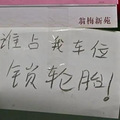 翁梅新苑
谁占我车位
锁轮胎!